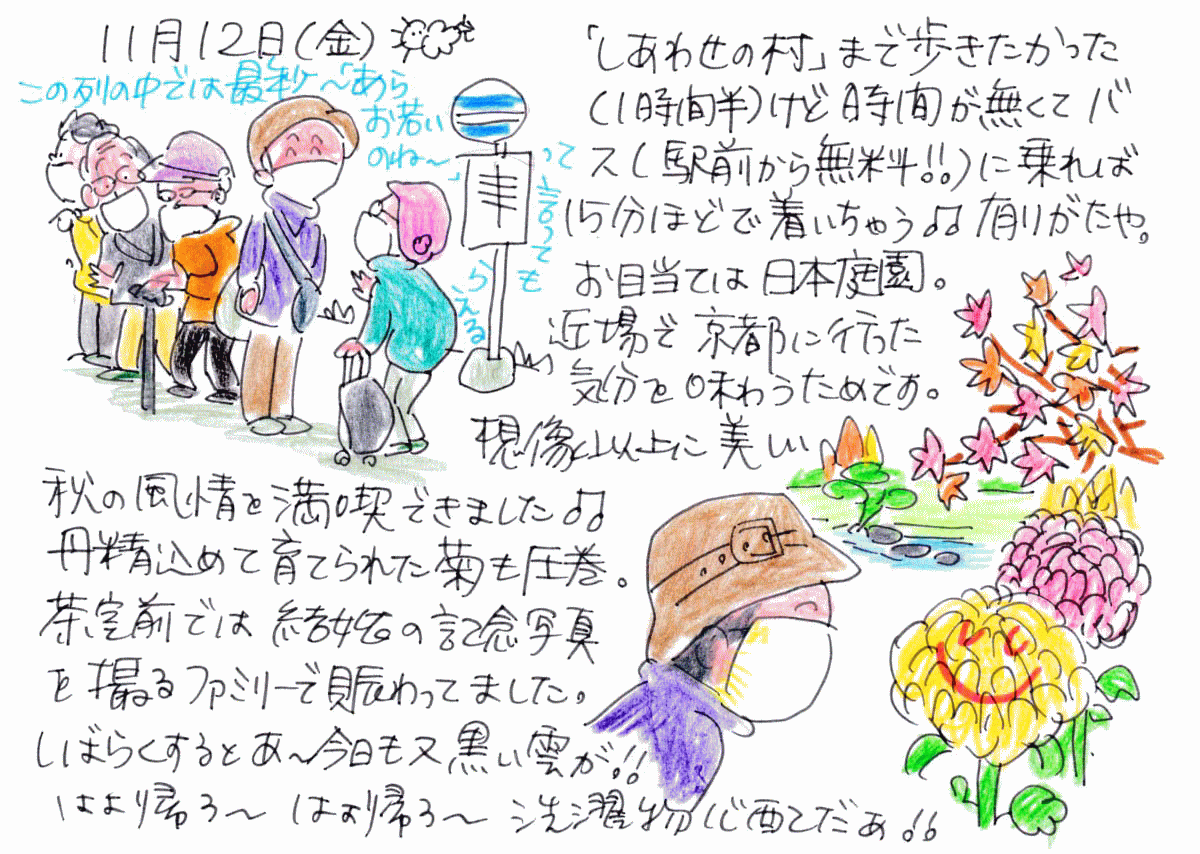 11月12日(金)
この列の中では最秒~「あら
お若い
のね~」
って言っても
らえる
「しあわせの村」まで歩きたかった
(1時間半)けど時間が無くてバ
ス(駅前から無料!!)に乗れば
15分ほどで着いちゃう♫ 有りがたや。
お目当ては日本庭園。
近場で京都に行った
気分を味わうためです。
想像以上に美しい
秋の風情を満喫できました♫
丹精込めて育てられた菊も圧巻。
茶室前では結婚の記念写真
を撮るファミリーで賑わってました。
しばらくするとあ~今日も又黒い雲が!!
はよ帰ろ~ はよ帰ろ~ 洗濯物心配だぁ!!